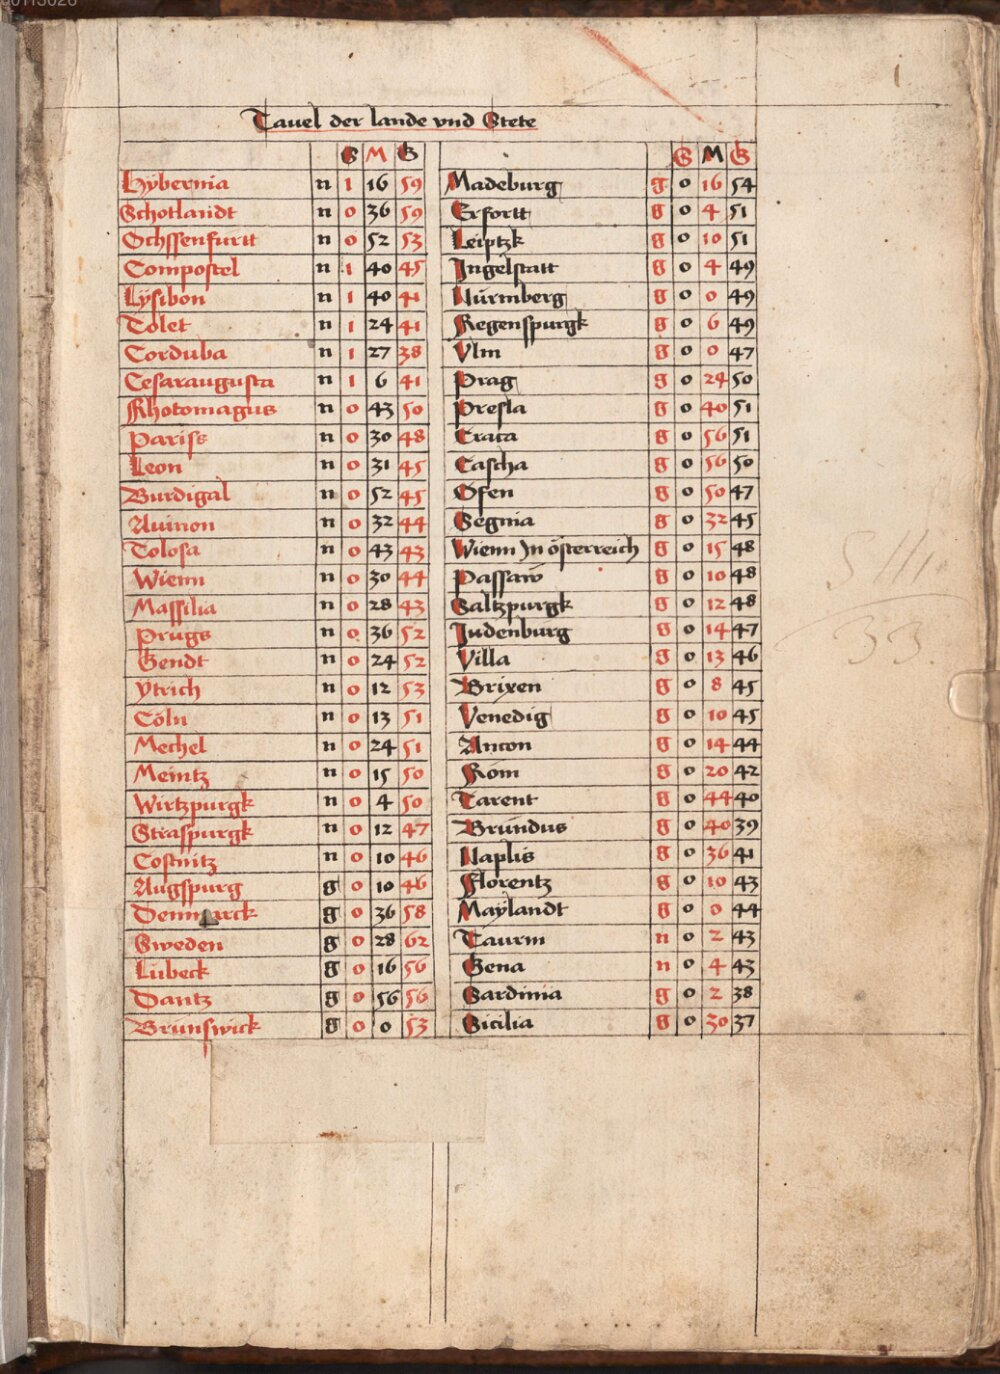 Tauel der lande vnd Stete
S M G
Hÿbernia n 1 16 59
Schotlandt n 0 36 59
Ochssenfurtt n 0 52 53
Compostel n 1 40 45
Lÿsibon n 1 40 41
Tolet n 1 24 41
Corduba n 1 27 38
Cesaraugusta n 1 6 41
Rhotomagus n 0 43 50
Pariss n 0 30 48
Leon n 0 31 45
Burdigal n 0 52 45
Auinon n 0 32 44
Tolosa n 0 43 43
Wienn n 0 30 44
Massilia n 0 28 43
Prugs n 0 36 52
Gendt n 0 24 52
Ytrich n 0 12 53
Cöln n 0 13 51
Mechel n 0 24 51
Meintz n 0 15 50
Wirtzpurgk n 0 4 50
Straspurgk n 0 12 47
Costnitz n 0 10 46
Augspurg g 0 10 46
Dennmarck g 0 36 58
Sweden g 0 28 62
Lübeck g 0 16 56
Dantz g 0 56 56
Brunswick g 0 0 53
S M G
Madeburg g 0 16 54
Erfortt g 0 4 51
Leiptzk g 0 10 51
Ingelstatt g 0 4 49
Nürmberg g 0 0 49
Regenspurgk g 0 6 49
Vlm g 0 0 47
Prag g 0 24 50
Presla g 0 40 51
Craca g 0 56 51
Cascha g 0 56 50
Ofen g 0 50 47
Segnia g 0 32 45
Wienn In österreich g 0 15 48
Passaw g 0 10 48
Saltzpurgk g 0 12 48
Judenburg g 0 14 47
Villa g 0 13 46
Brixen g 0 8 45
Venedig g 0 10 45
Ancon g 0 14 44
Rom g 0 20 42
Tarent g 0 44 40
Brundus g 0 40 39
Naplis g 0 36 41
Florentz g 0 10 43
Maÿlandt g 0 0 44
Taurm n 0 2 43
Gena n 0 4 43
Sardinia g 0 2 38
Sicilia g 0 30 37
33.